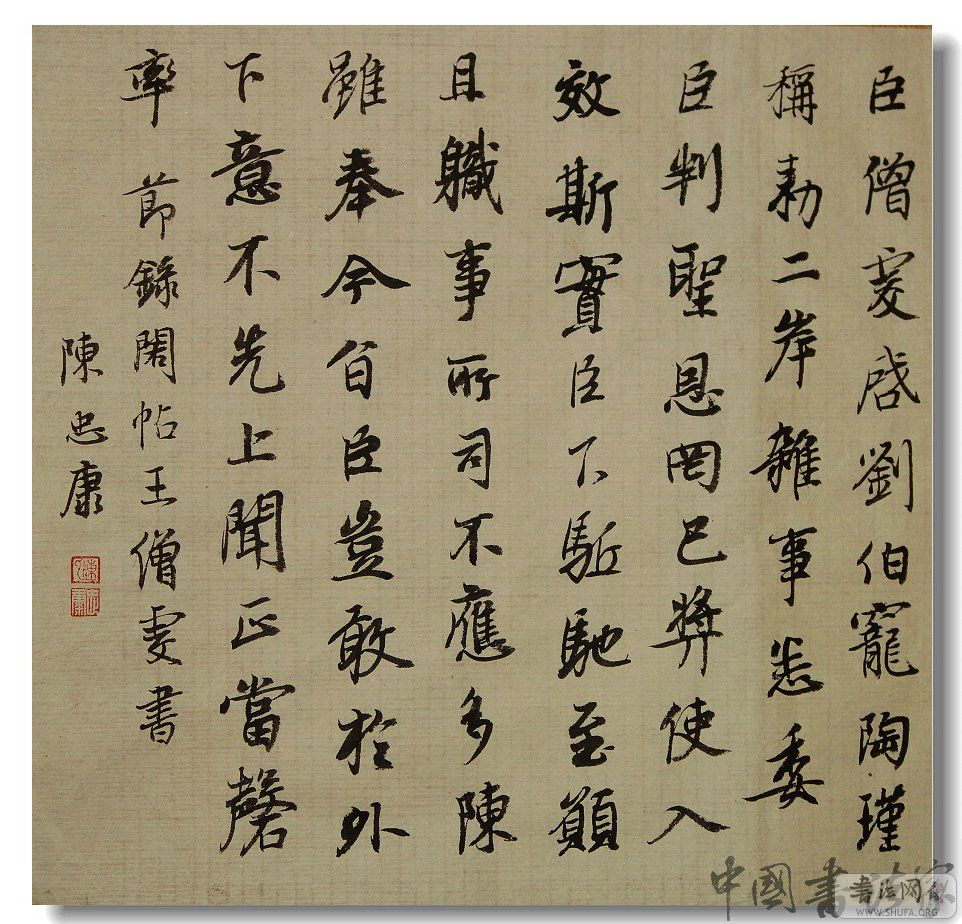 臣僧虔啓劉伯寵陶瑾
稱勅二岸雜事悉委
臣判聖恩罔已奬使入
效斯實臣下駈馳至願
且職事所司不應多陳
雖奉今旨臣豈敢於外
下意不先上聞正當罄
率 節錄閣帖王僧虔書
陳忠康
中國書法家
書法网
WWW.SHUFA.ORG